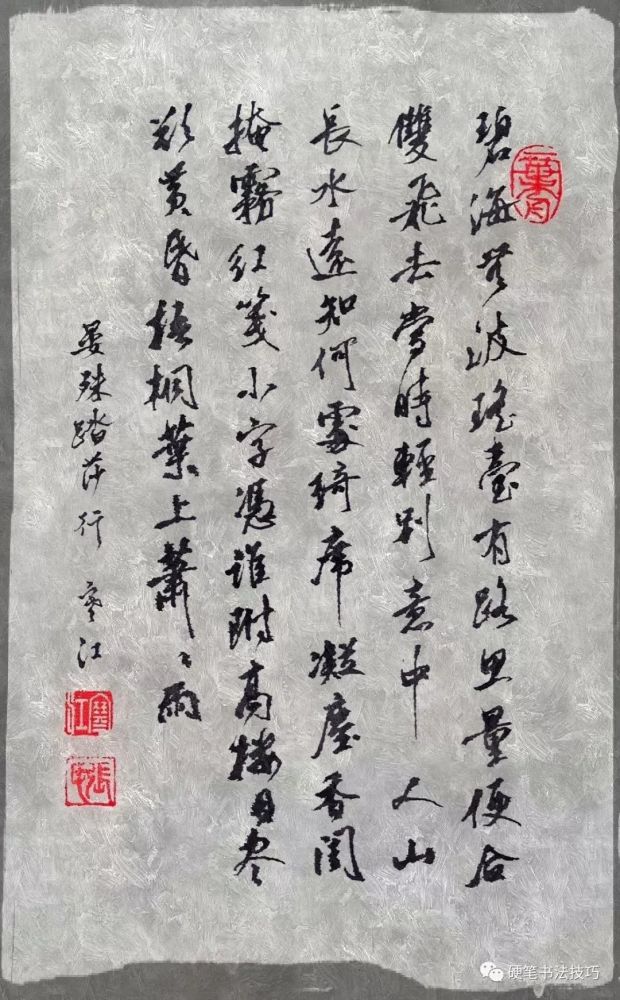 碧海無波瑤臺有路思量便合
雙飛去當時輕別意中人山
長水遠知何處綺席凝塵香閨
掩霧紅箋小字憑誰附高樓目盡
欲黃昏梧桐葉上蕭〻雨
晏殊踏莎行 寒江
寒江
硬笔书法技巧